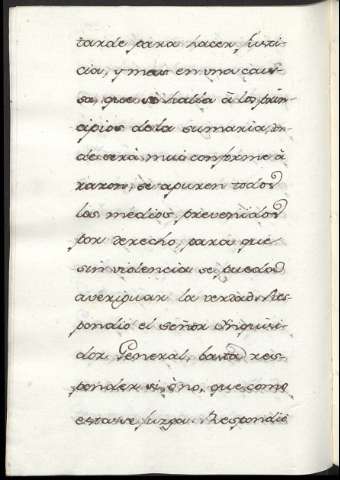 tarde para hacer Justi-
cia, y mas en una cau-
sa, que se halla â los prin-
cipios de la sumaria, en
de serà mui conforme â
razon, se apuren todos
los medios prevenidos
por derecho, para que
sin violencia se pueda
averiguar la verdad: Res-
pondiò el señor Inquisi-
dor General, basta res-
ponder si, ò no, que como
esta se juzga. Respondiò